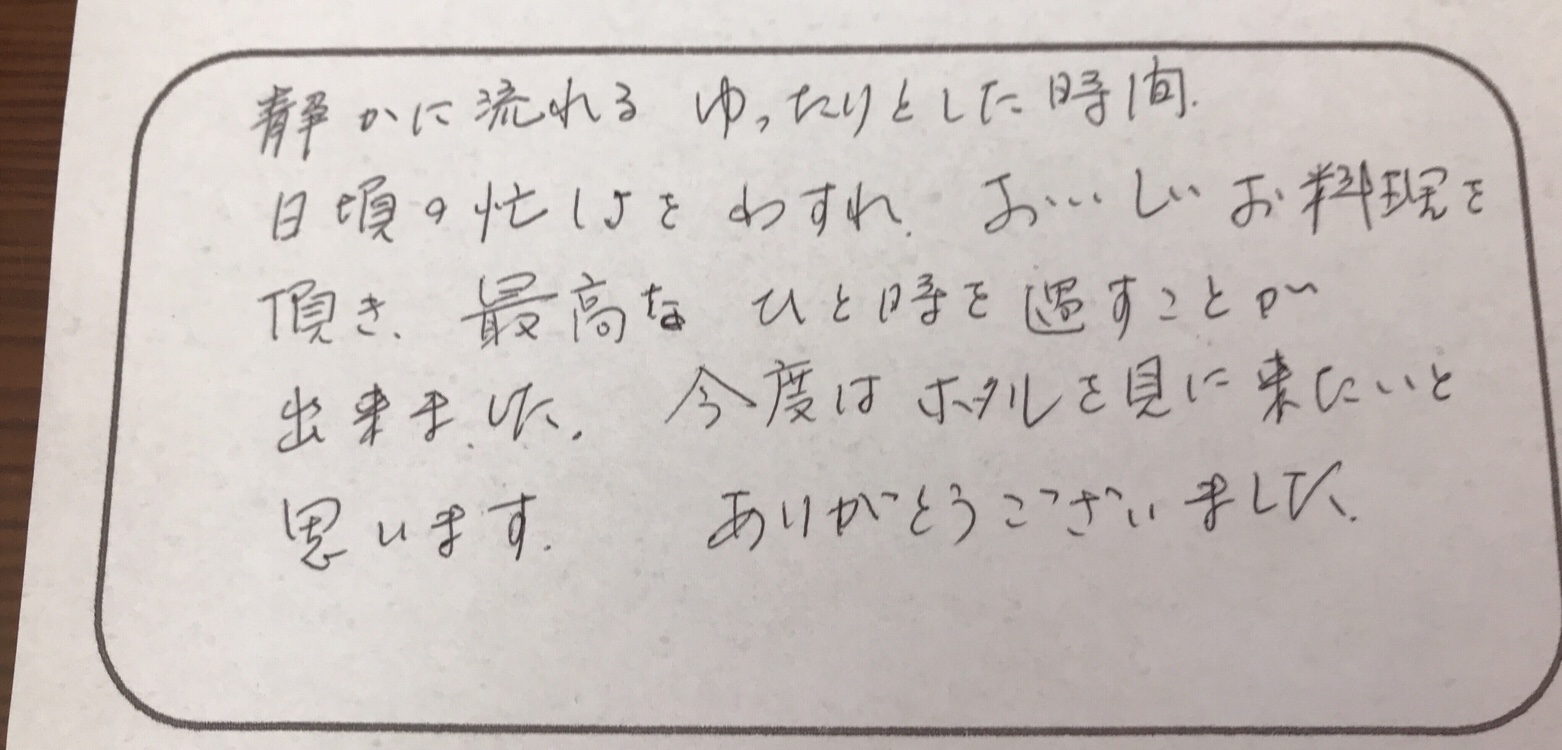 静かに流れる ゆったりとした時間.
日頃の忙しさをわすれ、おいしいお料理を
頂き、最高な ひと時を過すことが
出来ました。 今度はホタルを見に来たいと
思います。 ありがとうございました。